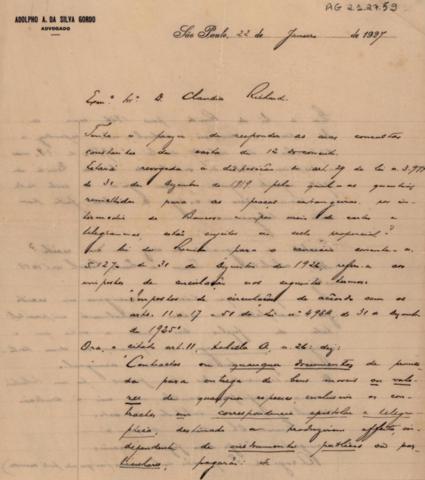 AG 2.1.27.59
ADOLPHO A. DA SILVA GORDO
ADVOGADO
São Paulo, 22 de Janeiro de 1927
Exm.º Sr. D. Claudia
Tenho o prazer de responder as suas consultas
constantes da carta de 12 do corrente.
Estará revogada a disposição do art. 29 da lei n. 3.979
de 31 de Dezembro de 1919 pela qual as quantias
remettidas para as praças estrangeiras, por in-
termedio de Bancos por meio de cartas e
telegrammas, estão sujeitas ao sello proporcional?
A lei da Receita para o exercicio corrente n.
5.127 de 31 de Dezembro de 1926, refere-se aos
impostos de circulação nos seguintes termos:
"Impostos de circulação de accordo com os
arts. 11 a 17 e 51 da lei nº 4984 de 31 de Dezembro
de 1925"
Ora, o citado art. 11, tabella A, n. 26: diz:
"Contractos ou quaesquer documentos de promes-
sa para entrega de bens moveis ou valo-
res de quaesquer especies os con-
tractos em correspondencia epistolar e telegra-
phica, destinados a produzirem effeito in-
dependente de instrumentos publicos ou par-
ticulares, pagarão: